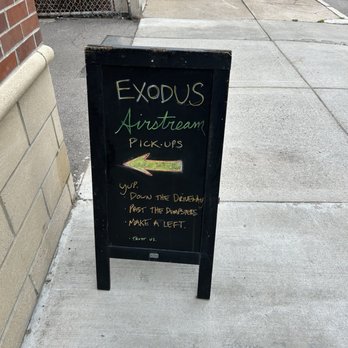 EXODUS
Airstream
PICK-UPS
YUP.
DOWN THE DRIVEWAY
PAST THE DUMPSTERS
· MAKE A LEFT.
- TRUST US.